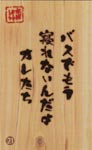 バスでもう
寝れないんだよ
オレたち